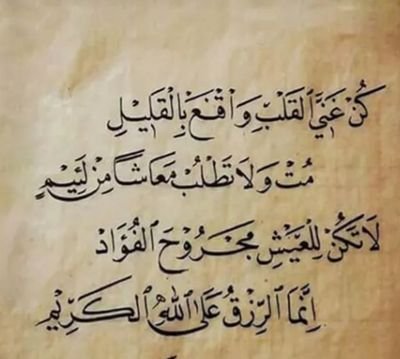 كُنْ غَنِيَّ الْقَلْبِ وَاقْنَعْ بِالْقَلِيْلِ
مُتْ وَلَا تَطْلُبْ مَعَاشًا مِنْ لَئِيْمٍ
لَا تَكُنْ لِلْعَيْشِ مَجْرُوْحَ الْفُؤَادِ
إِنَّمَا الرِّزْقُ عَلَى اللهِ الْكَرِيْمِ